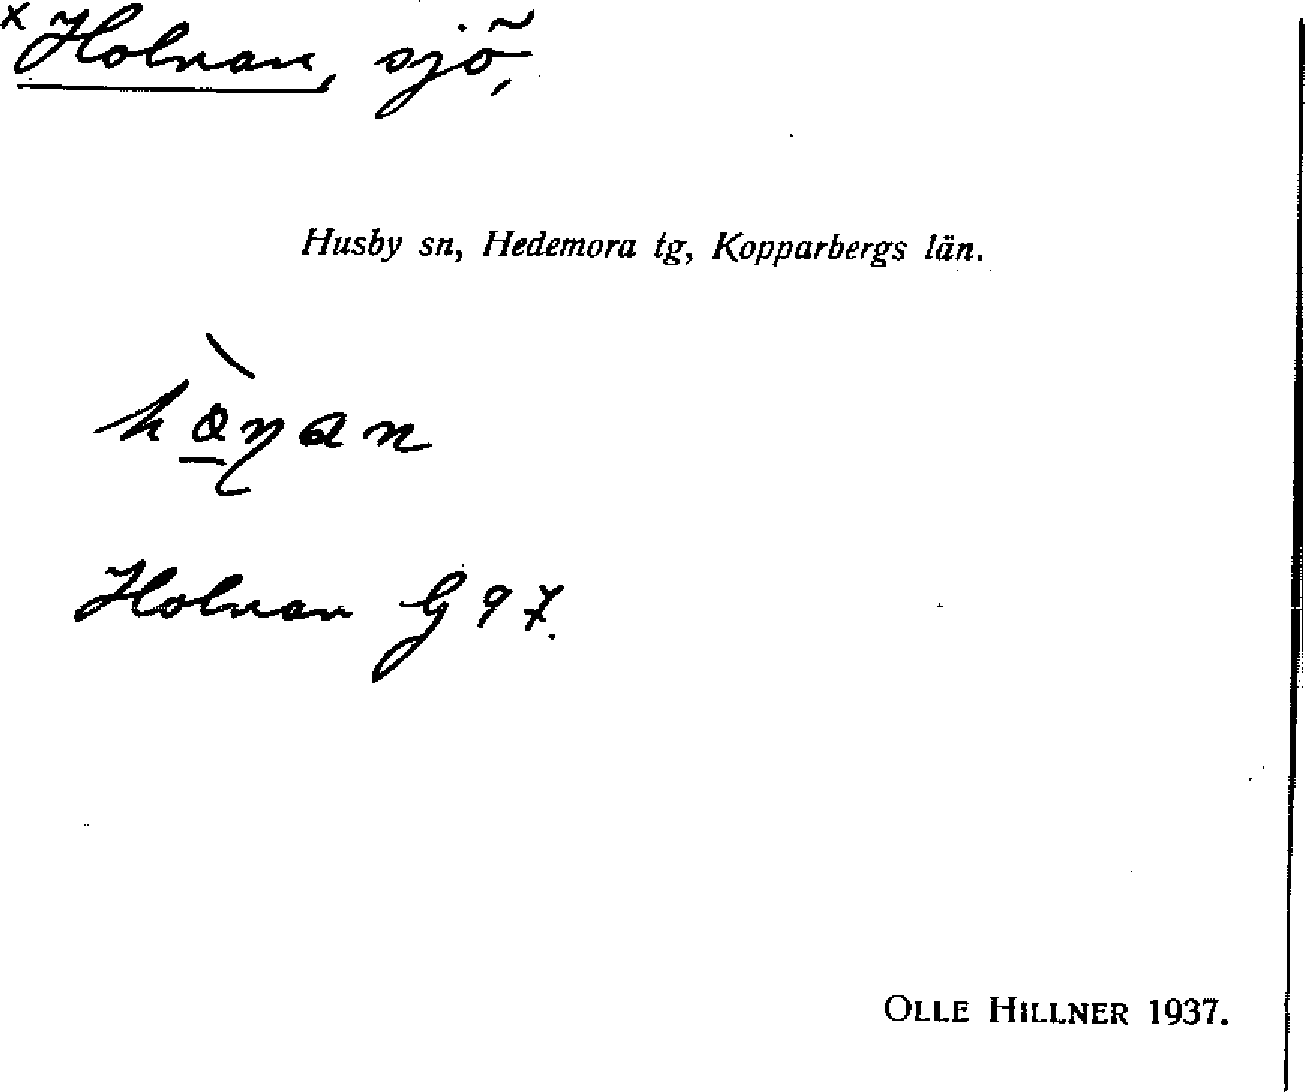 x Holnan, sjö,
Husby sn, Hedemora tg, Kopparbergs län.
Holnan G 97.
OLLE HILLNER 1937.